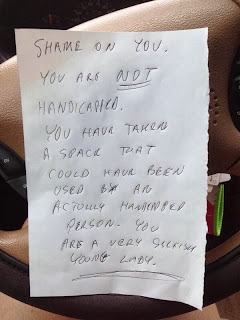 SHAME ON YOU.
YOU ARE NOT
HANDICAPPED.
YOU HAVE TAKEN
A SPACE THAT
COULD HAVE BEEN
USED BY AN
ACTULLY HANDICAPPED
PERSON. YOU
ARE A VERY SELFISH
YOUNG LADY.